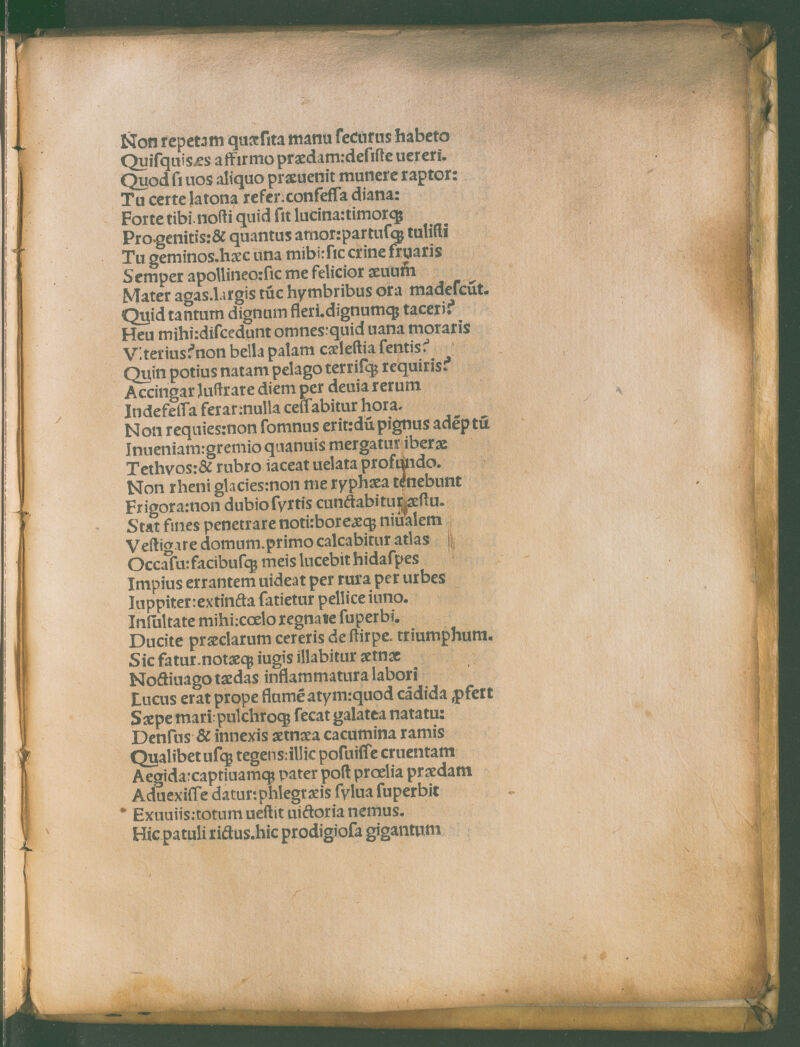 Non repetam quæſita manu ſecurus habeto
Quiſquis es affirmo prædam:deſiſte uereri.
Quod ſi uos aliquo præuenit munere raptor:
Tu certe latona refer.confeſſa diana:
Forte tibi.noſti quid ſit lucina:timorqꝫ
Pro genitis:& quantus amor:partuſqꝫ tuliſti
Tu geminos.hæc una mihi:ſic crine fruaris
Semper apollineo:ſic me felicior æuum
Mater agas.largis tūc hymbribus ora madeſcūt.
Quid tantum dignum fleri.dignumqꝫ taceri?
Heu mihi:diſcedunt omnes:quid uana moraris
Vlterius?non bella palam cæleſtia ſentis?
Quin potius natam pelago terriſqꝫ requiris?
Accingar luſtrare diem per deuia rerum
Indefeſſa ferar:nulla ceſſabitur hora.
Non requies:non ſomnus erit:dū pignus adēptū
Inueniam:gremio quanuis mergatur iberæ
Tethyos:& rubro iaceat uelata profundo.
Non rheni glacies:non me ryphæa tenebunt
Frigora:non dubio ſyrtis cunctabitur æſtu.
Stat fines penetrare noti:boreæqꝫ niualem
Veſtigare domum.primo calcabitur atlas
Occaſu:facibuſqꝫ meis lucebit hidaſpes
Impius errantem uideat per rura per urbes
Iuppiter:extincta ſatietur pellice iuno.
Inſultate mihi:cœlo regnate ſuperbi.
Ducite præclarum cereris de ſtirpe. triumphum.
Sic fatur.notæqꝫ iugis illabitur ætnæ
Noctiuago tædas inflammatura labori
Lucus erat prope flumē atym:quod cādida ꝓfert
Sæpe mari:pulchroqꝫ ſecat galatea natatu:
Denſus & innexis ætnæa cacumina ramis
Qualibet uſqꝫ tegens:illic poſuiſſe cruentam
Aegida:captiuamqꝫ pater poſt prœlia prædam
Aduexiſſe datur:phlegræis ſylua ſuperbit
Exuuiis:totum ueſtit uictoria nemus.
Hic patuli rictus.hic prodigioſa gigantum